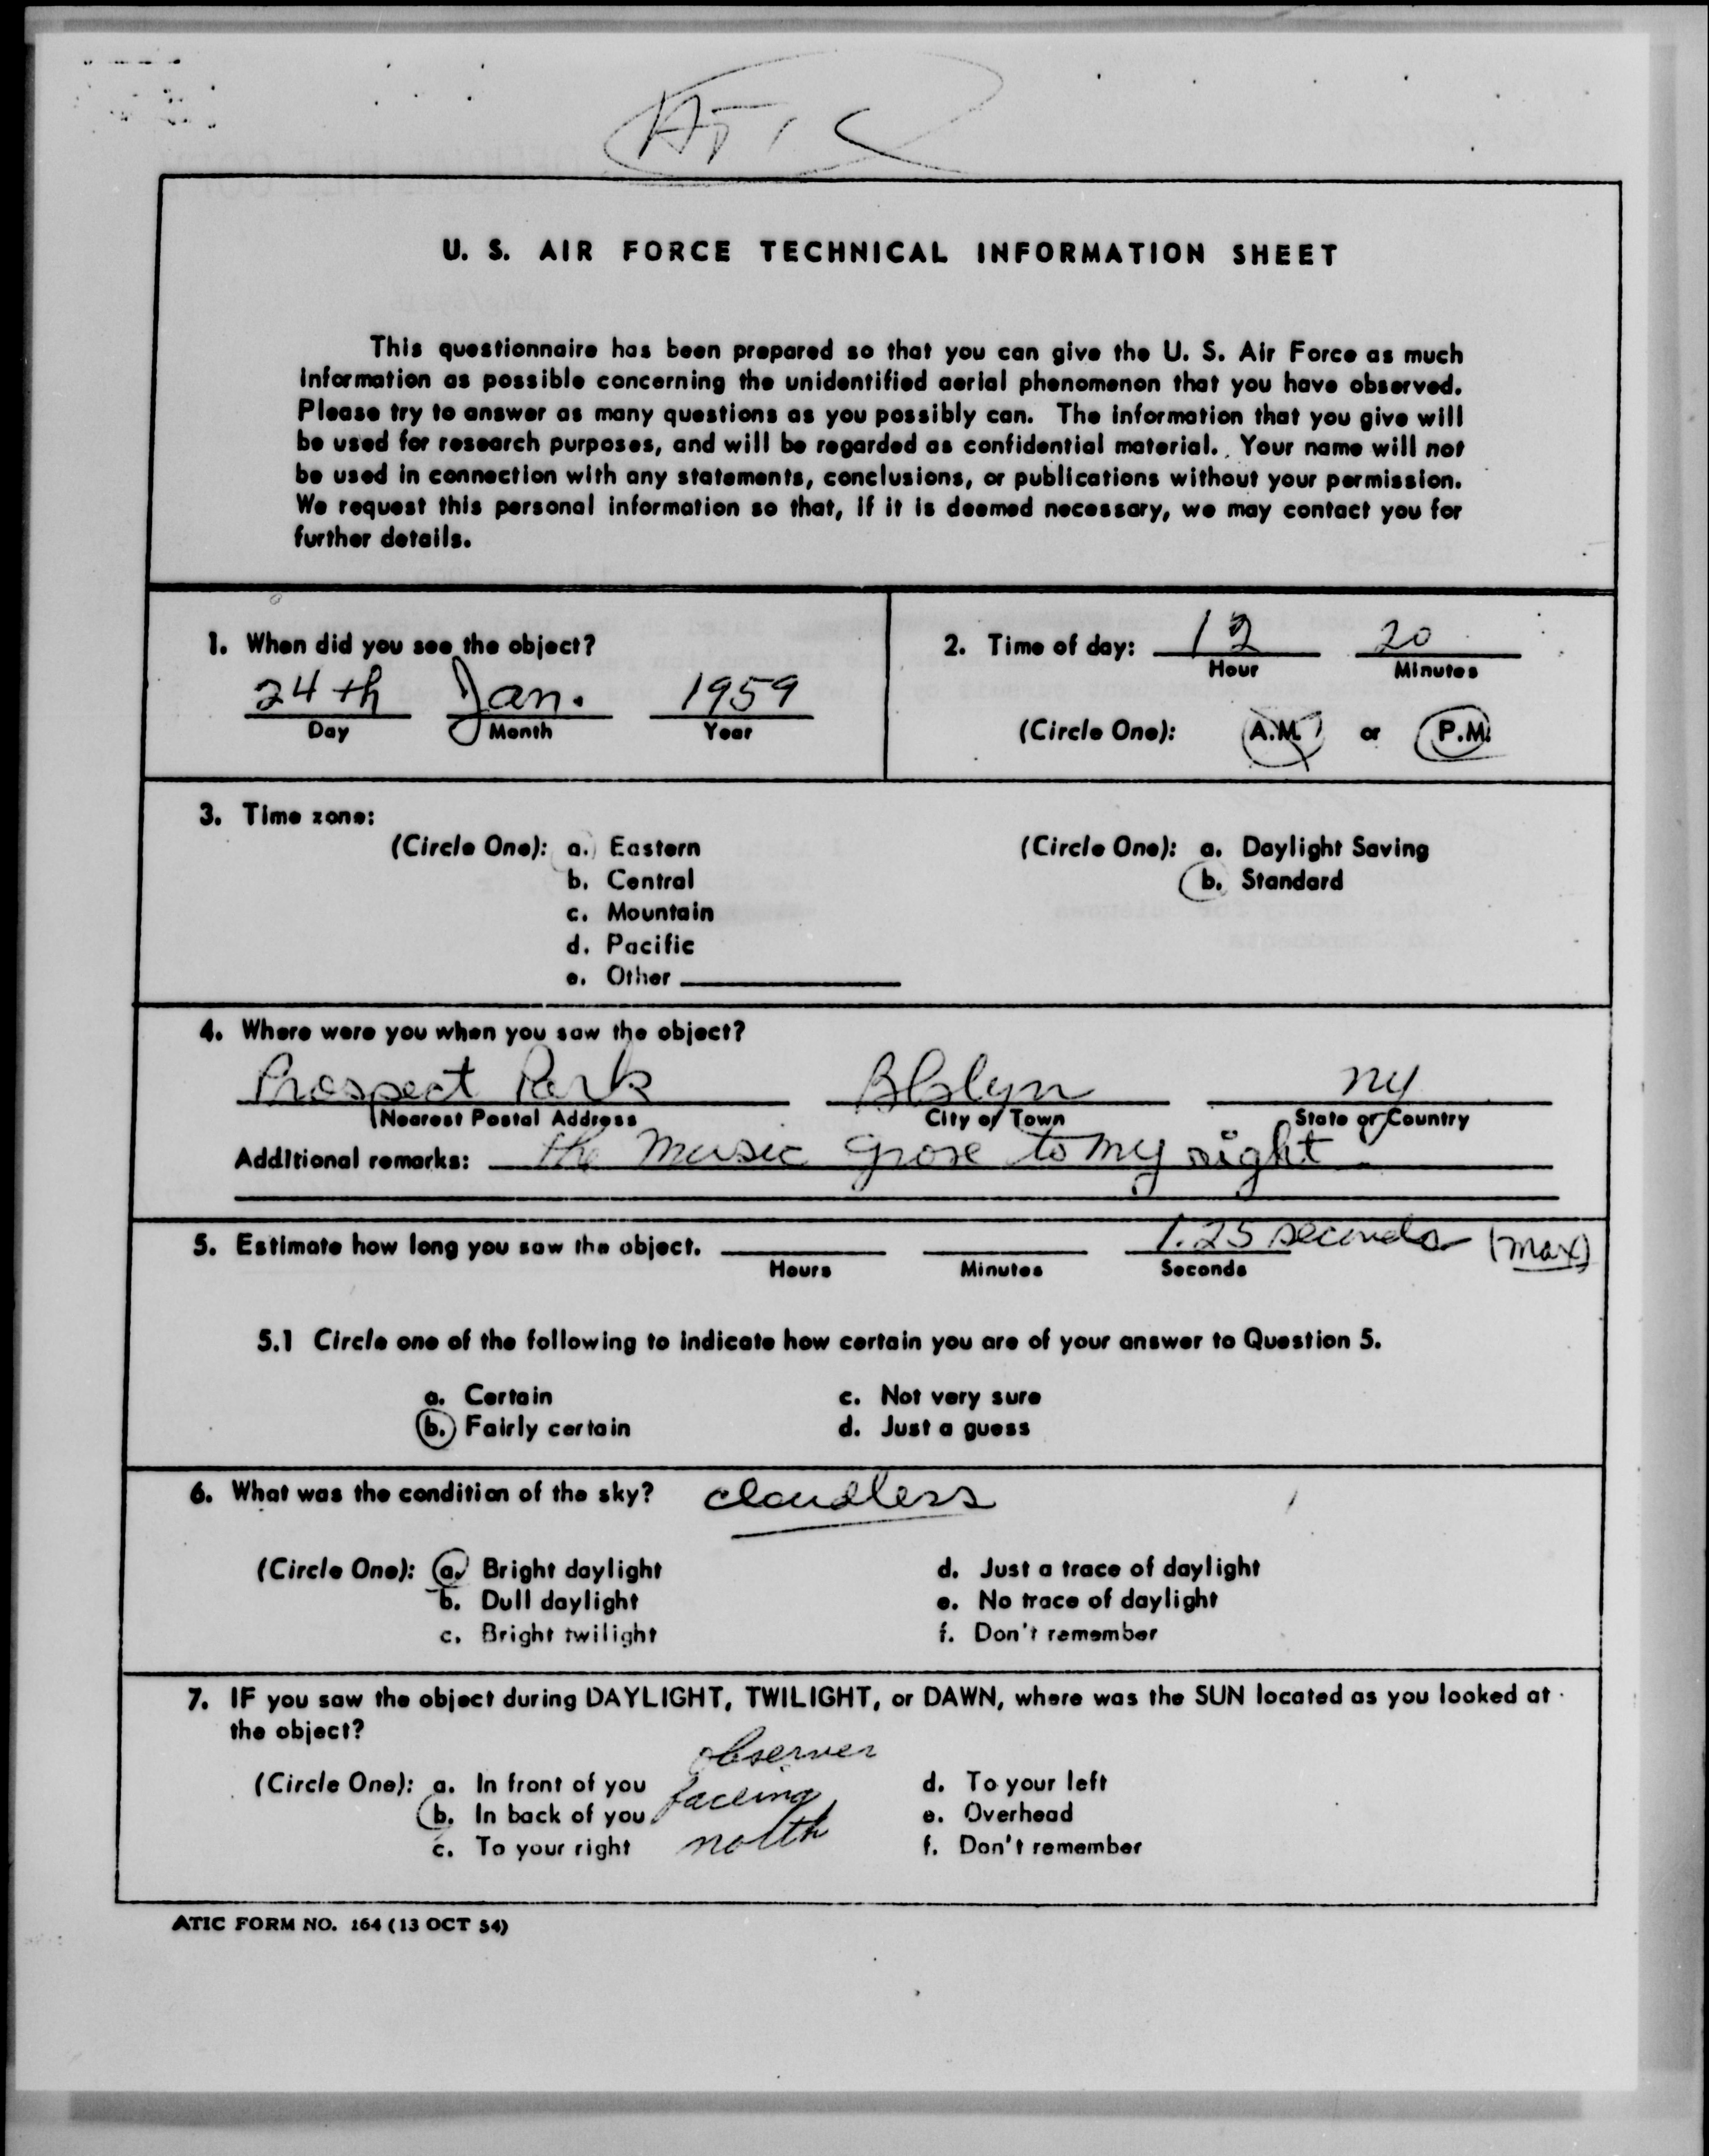 ATIC
U. S. AIR FORCE TECHNICAL INFORMATION SHEET
This questionnaire has been prepared so that you can give the U. S. Air Force as much
information as possible concerning the unidentified aerial phenomenon that you have observed.
Please try to answer as many questions as you possibly can. The information that you give will
be used for research purposes, and will be regarded as confidential material. Your name will not
be used in connection with any statements, conclusions, or publications without your permission.
We request this personal information so that, if it is deemed necessary, we may contact you for
further details.
1. When did you see the object?
24th Jan. 1959
Day Month Year
2. Time of day: 12 20
Hour Minutes
(Circle One): A.M. or P.M.
3. Time zone:
(Circle One): a. Eastern
b. Central
c. Mountain
d. Pacific
e. Other
(Circle One): a. Daylight Saving
b. Standard
4. Where were you when you saw the object?
Prospect Park Bklyn NY
Nearest Postal Address City or Town State or Country
Additional remarks: the music grove to my right
5. Estimate how long you saw the object. 1.25 seconds (max)
Hours Minutes Seconds
5.1 Circle one of the following to indicate how certain you are of your answer to Question 5.
a. Certain c. Not very sure
b. Fairly certain d. Just a guess
6. What was the condition of the sky? cloudless
(Circle One): a. Bright daylight d. Just a trace of daylight
b. Dull daylight e. No trace of daylight
c. Bright twilight f. Don't remember
7. IF you saw the object during DAYLIGHT, TWILIGHT, or DAWN, where was the SUN located as you looked at
the object?
observer
(Circle One): a. In front of you facing d. To your left
b. In back of you north e. Overhead
c. To your right f. Don't remember
ATIC FORM NO. 164 (13 OCT 54)